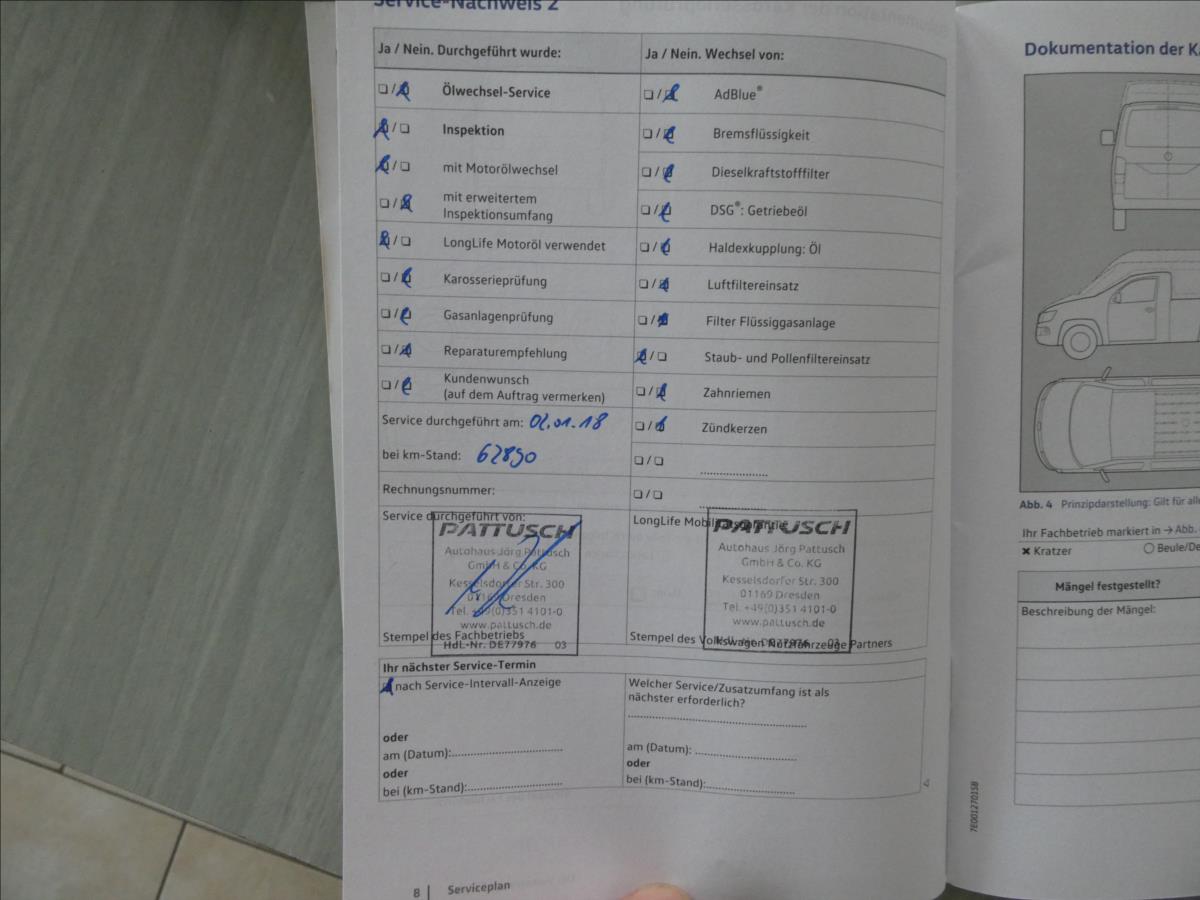 Service-Nachweis 2
Ja / Nein. Durchgeführt wurde:
Ölwechsel-Service
Inspektion
mit Motorölwechsel
mit erweitertem
Inspektionsumfang
LongLife Motoröl verwendet
Karosserieprüfung
Gasanlagenprüfung
Reparaturempfehlung
Kundenwunsch
(auf dem Auftrag vermerken)
Service durchgeführt am: 02.01.18
bei km-Stand: 62890
Rechnungsnummer:
Service durchgeführt von:
PATTUSCH
Autohaus Jörg Pattusch
GmbH & Co. KG
Kesselsdorfer Str. 300
01169 Dresden
Tel. +49(0)351 4101-0
www.pattusch.de
Stempel des Fachbetriebs
Hdl.-Nr. DE77976 03
Ja / Nein. Wechsel von:
AdBlue®
Bremsflüssigkeit
Dieselkraftstofffilter
DSG®: Getriebeöl
Haldexkupplung: Öl
Luftfiltereinsatz
Filter Flüssiggasanlage
Staub- und Pollenfiltereinsatz
Zahnriemen
Zündkerzen
LongLife Mobilitätsgarantie
PATTUSCH
Autohaus Jörg Pattusch
GmbH & Co. KG
Kesselsdorfer Str. 300
01169 Dresden
Tel. +49(0)351 4101-0
www.pattusch.de
Stempel des Volkswagen Nutzfahrzeuge Partners
Hdl.-Nr. DE77976 03
Ihr nächster Service-Termin
nach Service-Intervall-Anzeige
oder
am (Datum):
oder
bei (km-Stand):
Welcher Service/Zusatzumfang ist als
nächster erforderlich?
am (Datum):
oder
bei (km-Stand):
4
8 | Serviceplan
Dokumentation der
Abb. 4 Prinzipdarstellung: Gilt für
Ihr Fachbetrieb markiert in → Abb.
Kratzer
Mängel festgestellt?
Beschreibung der Mängel:
7E0012701SB